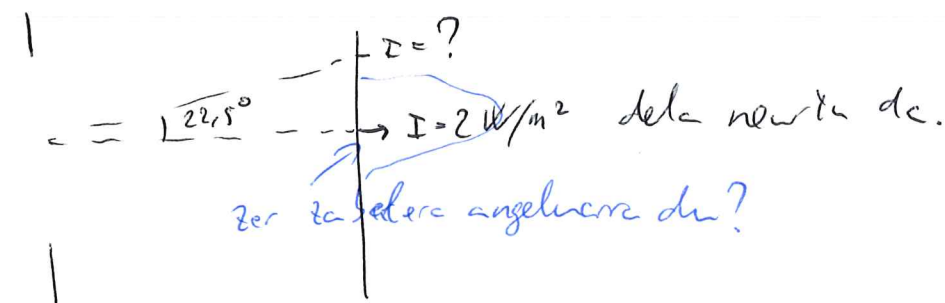 I = ?
22,5°
I = 2 W/m² dela neurtu da.
zer zabalera angeluarra du?